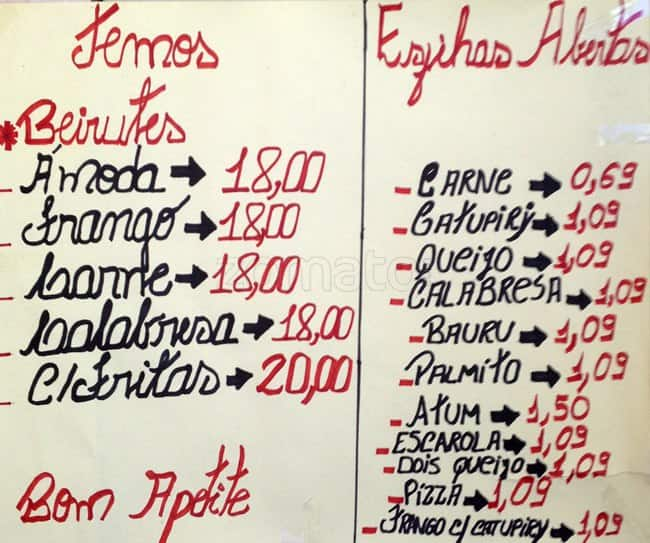 Temos
* Beirutes
- À moda → 18,00
- Frango → 18,00
- Carne → 18,00
- Calabresa → 18,00
- C/Fritas → 20,00
Bom Apetite
Esfihas Abertas
- CARNE → 0,69
- CATUPIRY → 1,09
- QUEIJO → 1,09
- CALABRESA → 1,09
- BAURU → 1,09
- PALMITO → 1,09
- ATUM → 1,50
- ESCAROLA → 1,09
- DOIS QUEIJO → 1,09
- PIZZA → 1,09
- FRANGO C/ CATUPIRY → 1,09
zomato